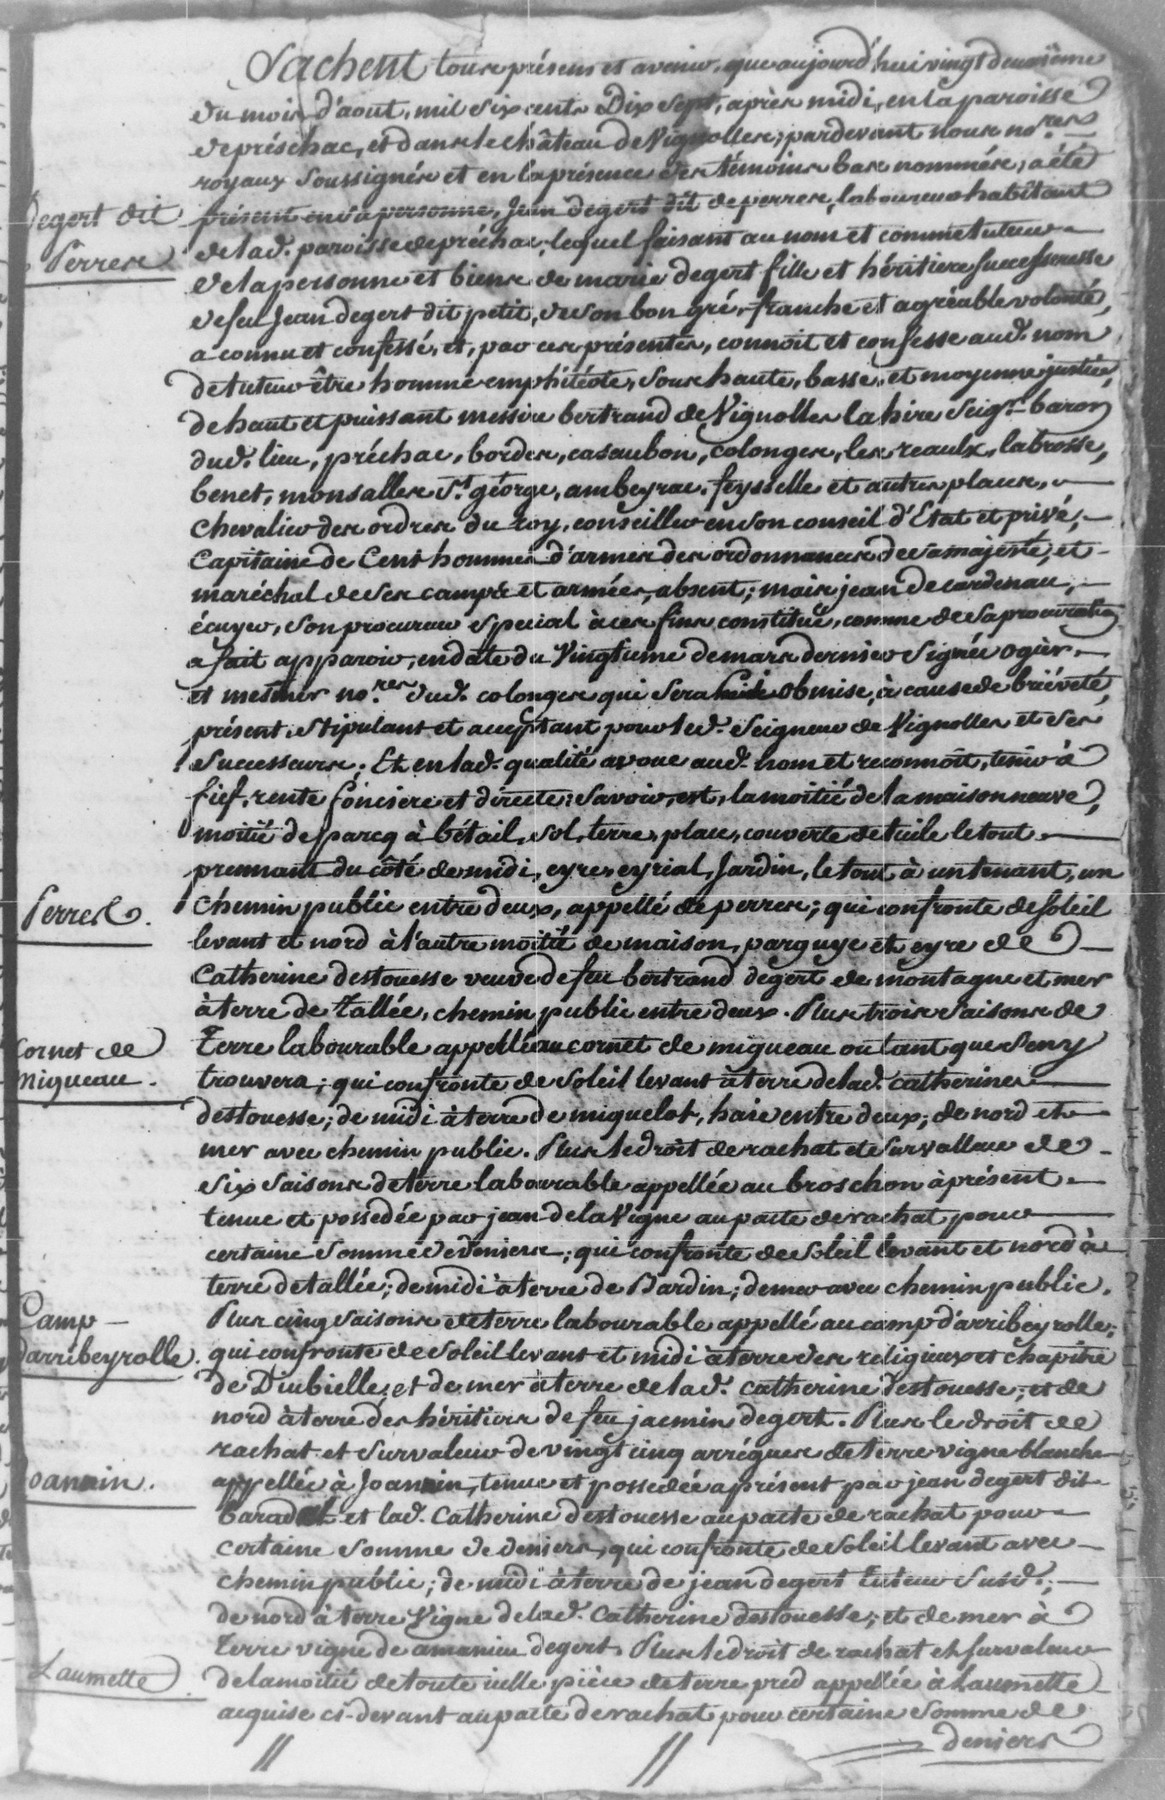 Sachent tous présens et avenir, que aujourd'hui vingt deuxième
du mois d'aout, mil six cents Dix Sept, après midi, en la paroisse
de préschac, et dans le château de Vignolles, pardevant nous no.res
royaux soussignés et en la présence des témoins bas nommés, a été
Degert dit
Perres
présent en sa personne, Jean degert dit de perres, laboureur habitant
de lad. paroisse de préchac, lequel faisant au nom et comme tuteur
de la personne et biens de marie degert fille et héritiere successeresse
de feu Jean degert dit petit, de son bon gré, franche et agréable volonté,
a connu et confessé, et, par ces présentes, connoit et confesse aud. nom
de tuteur être homme emphitéote, sous haute, basse, et moyenne justice,
de haut et puissant messire bertrand de Vignolles la hire Seigr. baron
dud. lieu, préchac, bordes, casaubon, colonges, les reaulx, labrosse,
benet, monsalles St. géorge, ambeyrac, feysselle et autres places,
Chevalier des ordres du roy, conseiller en son conseil d'Etat et privé,
Capitaine de Cent hommes d'armes des ordonnances de sa majesté, et
maréchal de ses camps et armées, absent; mais jean de cardenau,
écuyer, son procureur spécial à ces fins constitué, comme de sa procuration
a fait apparoir, en date du Vingtieme de mars dernier signée ogièr
et mesmer no.res dud. colonges qui sera obmise, à cause de briéveté,
présent, stipulant et acceptant pour led. Seigneur de Vignolles et ses
successeurs; Et en lad. qualité avoue aud. nom et reconnoit, tenir à
fief, rente fonciere et directe: savoir, est, la moitié de la maison neuve,
moitié de parcq à bétail, sol, terre, place, couverte de tuile le tout
prennant du côté de midi, eyres eyrial, Jardin, le tout à un tenant, un
Perres.
chemin public entre deux, appellé de perres; qui confronte de soleil
levant et nord à l'autre moitié de maison, parguye et eyre de
Catherine destouesse veuve de feu bertrand degert de montague et mer
à terre de tallée, chemin public entre deux. Plus trois saisons de
Cornet de
Miqueau.
Terre labourable appellé au cornet de miqueau ou tant que s'eny
trouvera; qui confronte de soleil levant à terre de lad. catherine
destouesse; de midi à terre de miquelot, haie entre deux; de nord et
mer avec chemin public. Plus le droit de rachat et survalleur de
six saisons de terre labourable appellée au broschon à présent
tenue et possedée par jean de la Vigne au pacte de rachat pour
certaine somme de deniers; qui confronte de soleil levant et nord à
terre de tallée; de midi à terre de Dardin; de mer avec chemin public.
Camp
d'arribeyrolle.
Plus cinq saisons de terre labourable appellé au camp d'arribeyrolle;
qui confronte de soleil levant et midi à terre des religieux et chapitre
de Diubielle; et de mer à terre de lad. catherine destouesse; et de
nord à terre des héritiers de feu jacmin degert. Plus le droit de
rachat et survaleur de vingt cinq arrégues de terre vigne blanche
Joanin.
appellée à Joanin, tenue et possedée à présent par jean degert dit
barad et lad. Catherine destouesse au pacte de rachat pour
certaine somme de deniers, qui confronte de soleil levant avec
chemin public; de midi à terre de jean degert tuteur susd.;
de nord à terre Vigne de lad. catherine destouesse; et de mer à
Terre vigne de amanieu degert. Plus le droit de rachat et survaleur
Laumette
de la moitié de toute icelle pièce de terre pred appellée à Laumette
acquise ci-devant au pacte de rachat pour certaine somme de
deniers